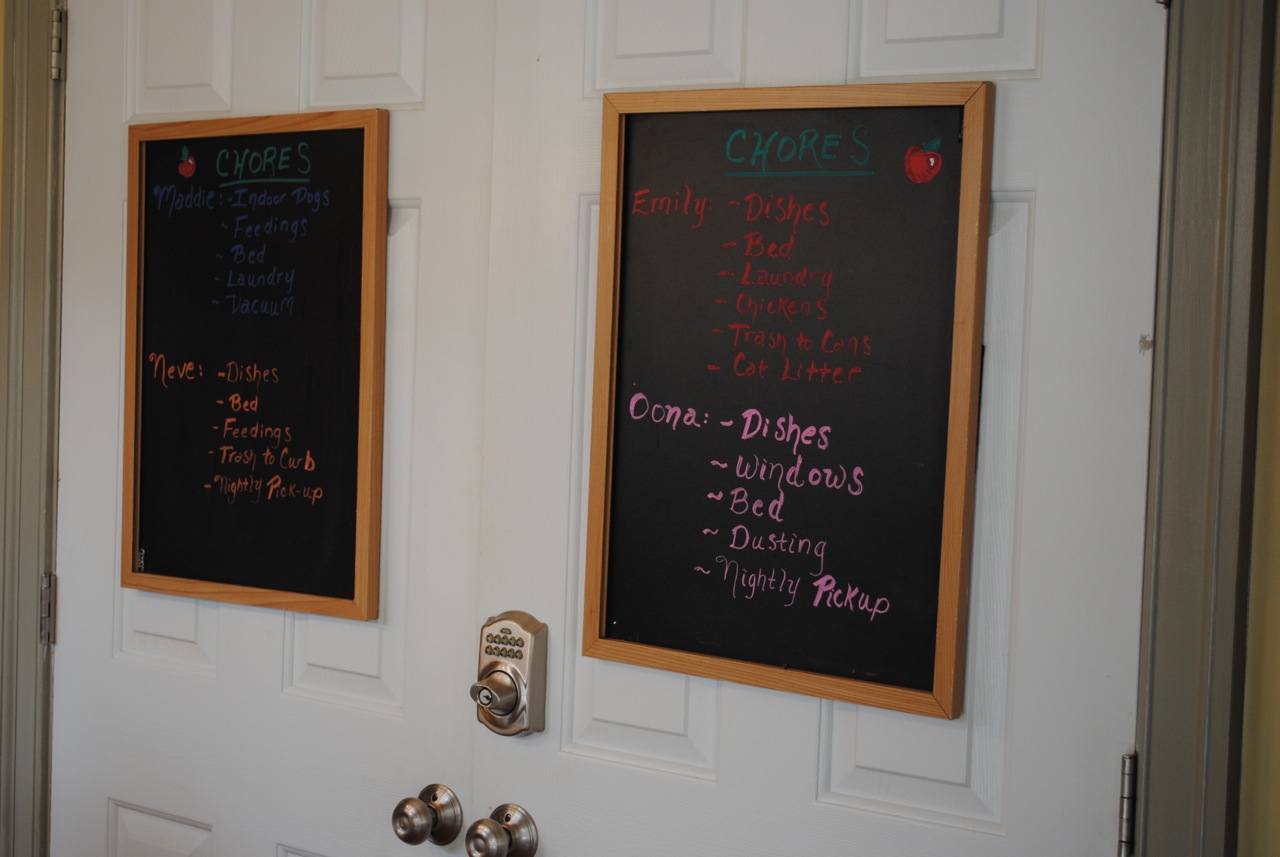 CHORES
Maddie: -Indoor Dogs
~ Feedings
- Bed
- Laundry
~ Vacuum
Neve: -Dishes
- Bed
-Feedings
- Trash to Curb
-Nightly Pick-up
CHORES
Emily: -Dishes
- Bed
- Laundry
- Chickens
- Trash to Cans
- Cat Litter
Oona: - Dishes
~ Windows
~ Bed
~ Dusting
~ Nightly Pickup